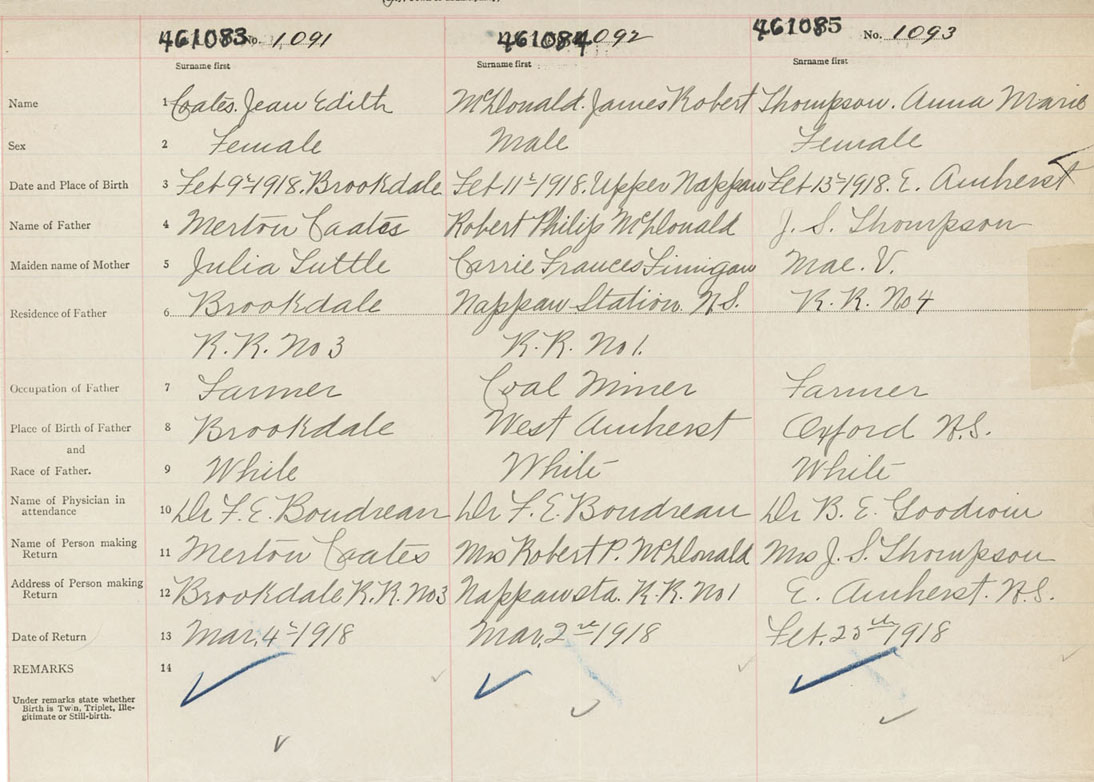 461083 No. 1091 461084 1092 461085 No. 1093
Surname first Surname first Surname first
Name 1 Coates. Jean Edith McDonald. James Robert Thompson. Anna Marie
Sex 2 Female Male Female
Date and Place of Birth 3 Feb 9th 1918. Brookdale Feb 11th 1918. Upper Nappan Feb 13th 1918. E. Amherst
Name of Father 4 Merton Coates Robert Philip McDonald J. S. Thompson
Maiden name of Mother 5 Julia Tuttle Carrie Frances Finnigan Mae. V.
Residence of Father 6 Brookdale Nappan Station. N.S. R. R. No 4
R. R. No 3 R. R. No 1.
Occupation of Father 7 Farmer Coal Miner Farmer
Place of Birth of Father 8 Brookdale West Amherst Oxford N.S.
and
Race of Father. 9 White White White
Name of Physician in attendance 10 Dr F. E. Boudreau Dr F. E. Boudreau Dr B. E. Goodwin
Name of Person making Return 11 Merton Coates Mrs Robert P. McDonald Mrs J. S. Thompson
Address of Person making Return 12 Brookdale R.R. No 3 Nappan sta. R.R. No 1 E. Amherst. N.S.
Date of Return 13 Mar. 4th 1918 Mar. 2nd 1918 Feb. 25th 1918
REMARKS 14
Under remarks state whether
Birth is Twin, Triplet, Ille-
gitimate or Still-birth.